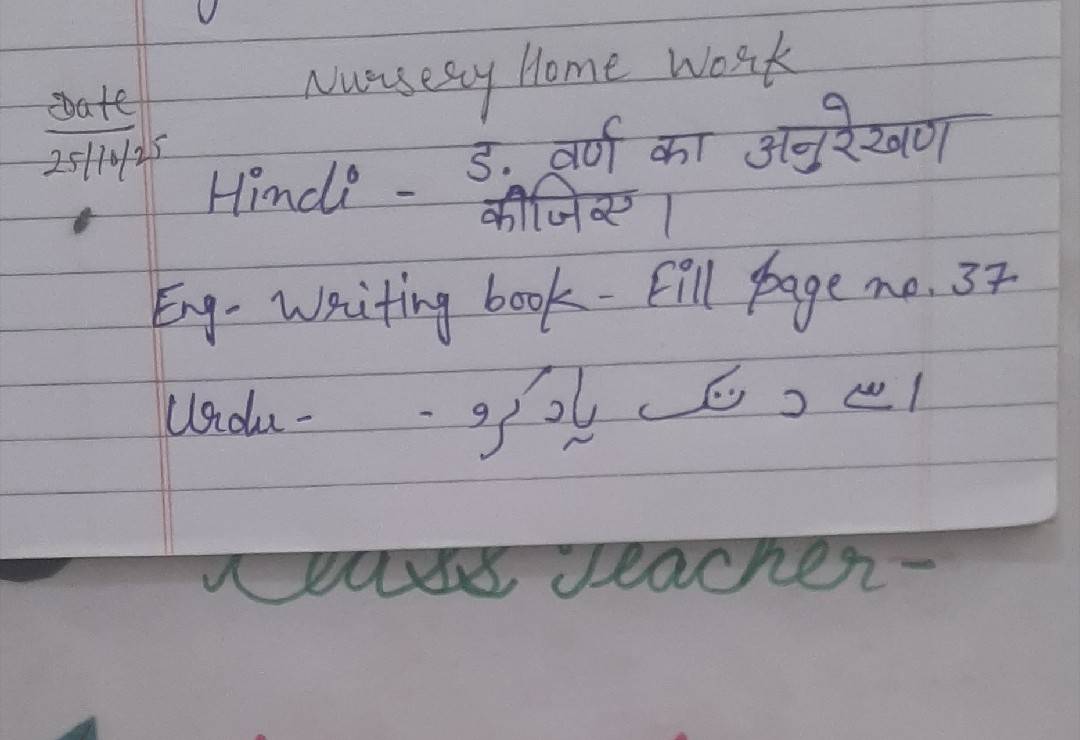 Nursery Home Work
Date
25/10/25
Hindi - ड. वर्ण का अनुरेखण
कीजिए।
Eng- Writing book - Fill page no. 37
Urdu- ا سے د تک یاد کرو -
Class Teacher -